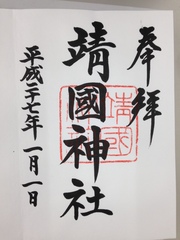 奉拝
靖國神社
平成二十七年一月一日